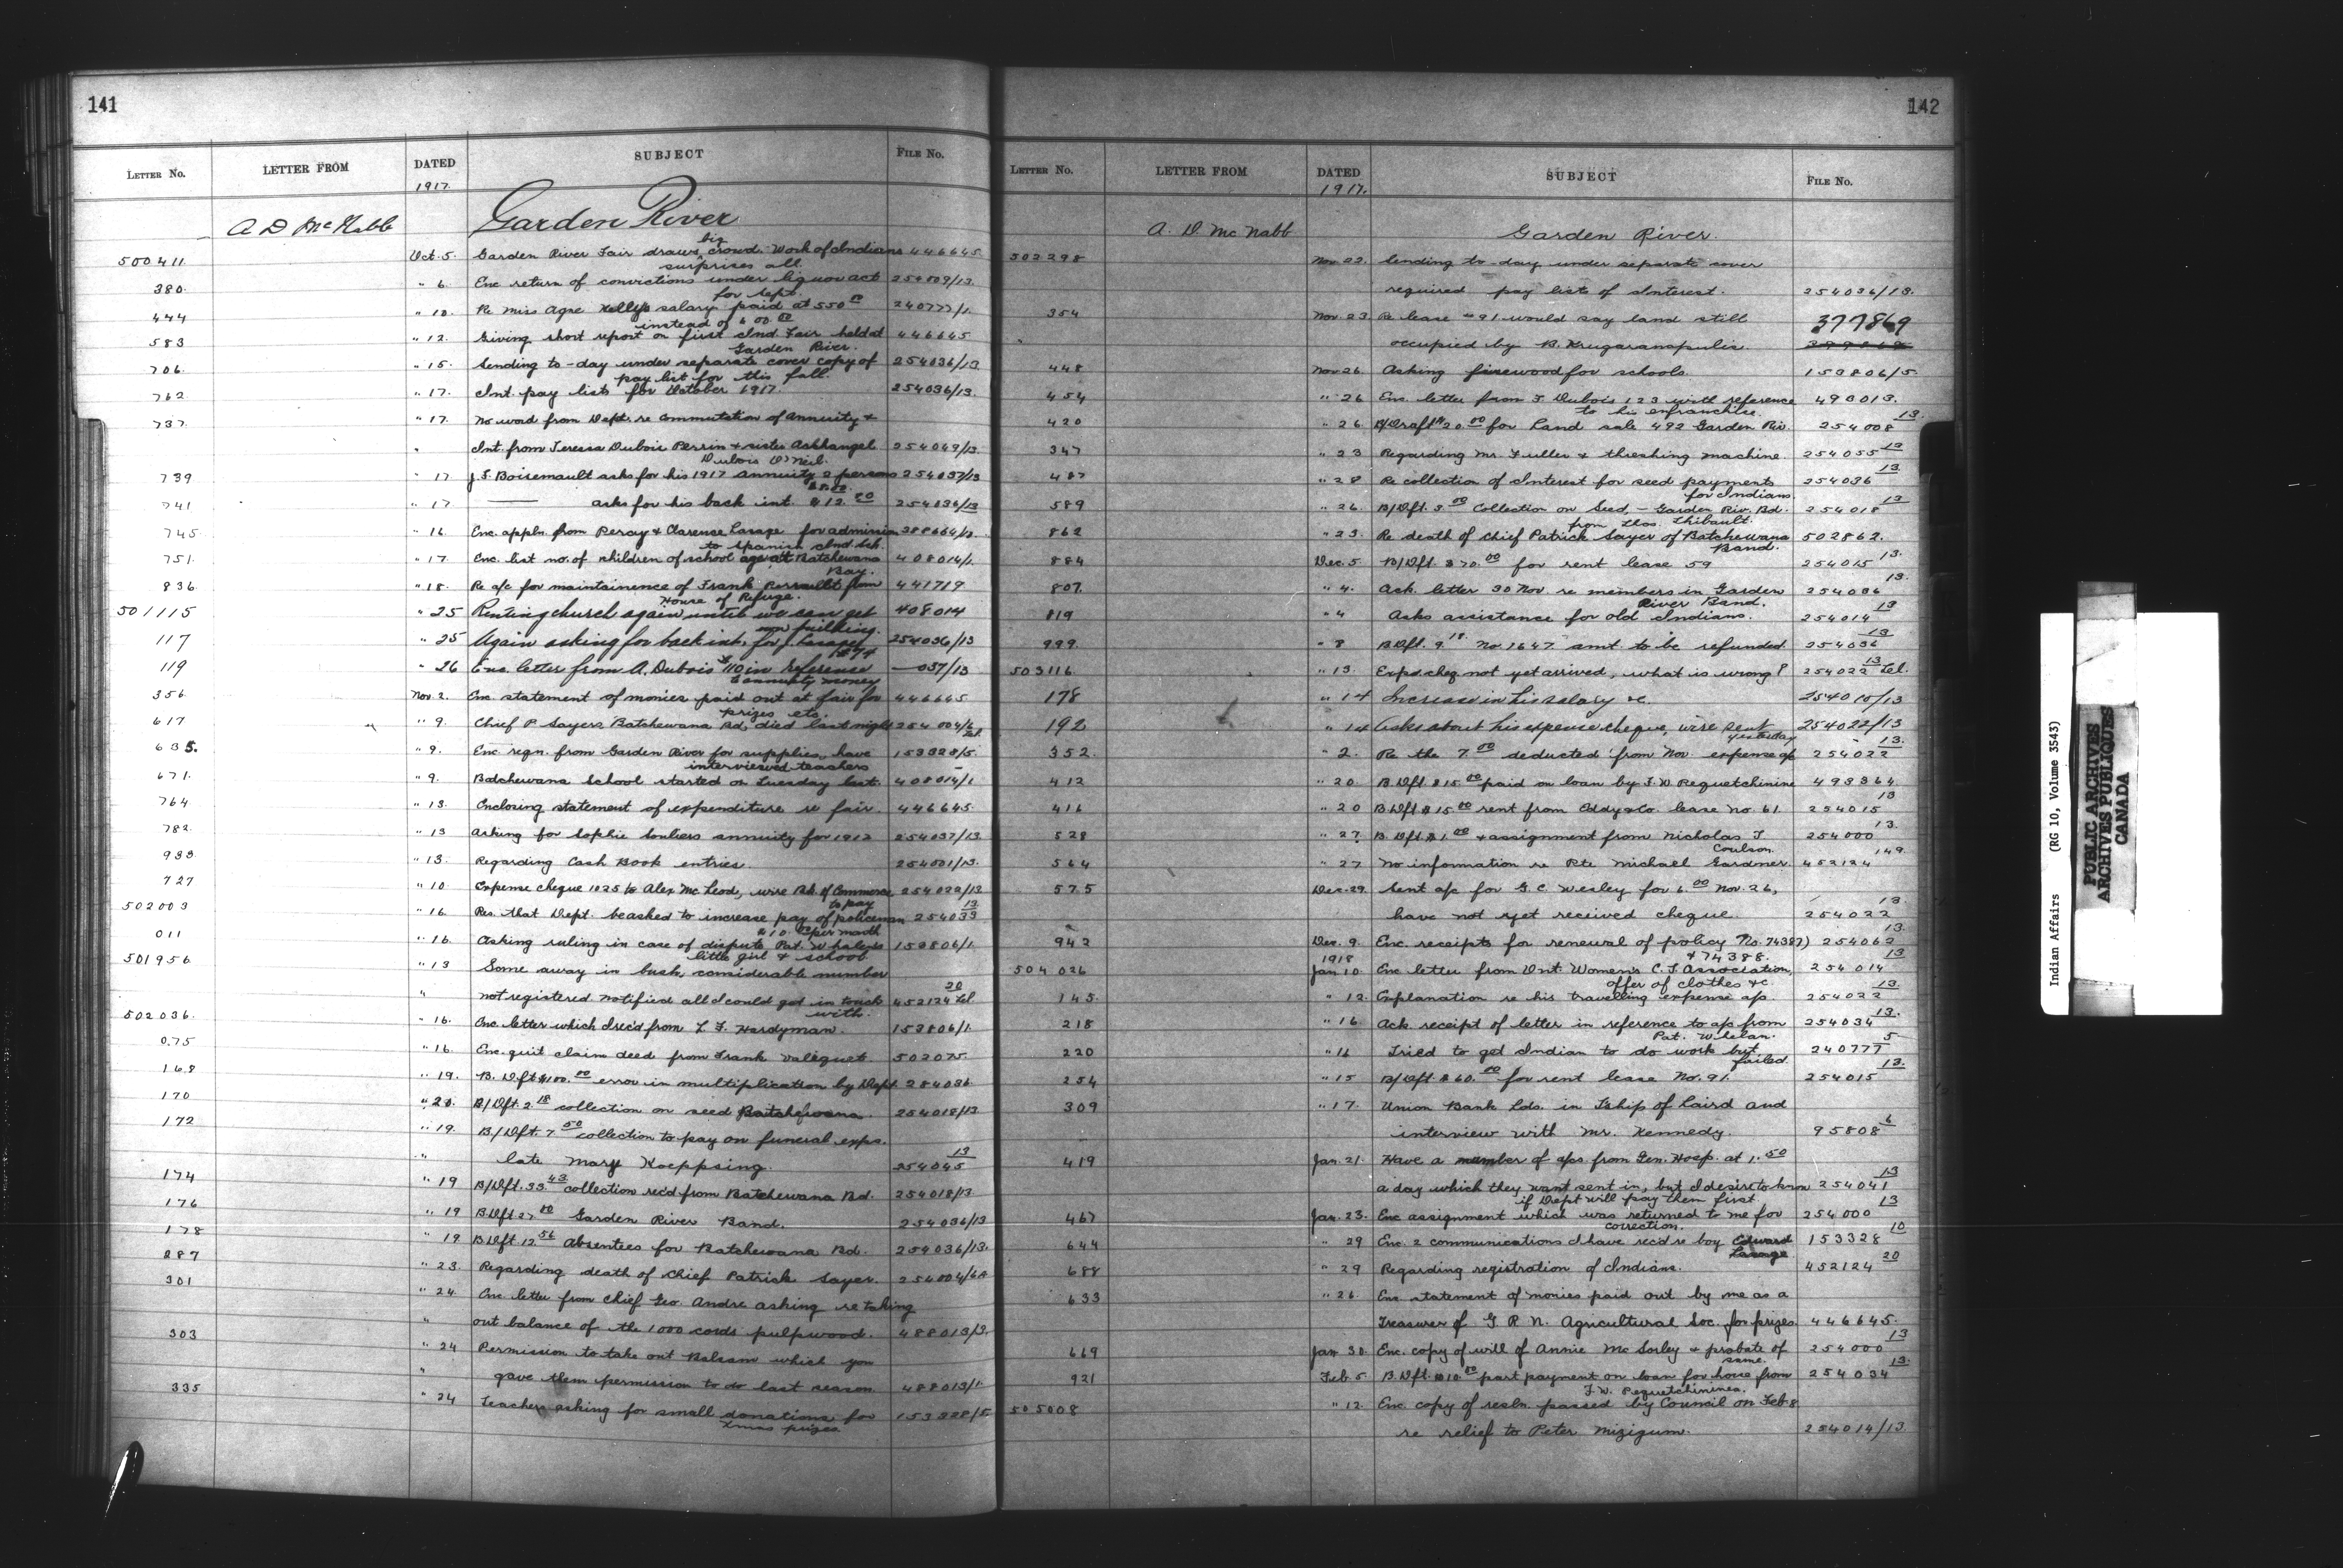 141
LETTER No. LETTER FROM DATED SUBJECT FILE No.
1917.
A D McNabb Garden River
500411 Oct. 5. Garden River Fair draws big crowd. Work of Indians 446645
surprises all.
380 " 6. Enc return of convictions under liquor act 254009/13.
for Sept.
444 " 10. Re Miss Agne Kelly's salary paid at 550 00 240777/1.
instead of 600 00
583 " 12. Giving short report on first Ind. Fair held at 446645
Garden River.
706. " 15. Sending to-day under separate cover copy of 254036/13.
pay list for this fall.
762 " 17. Int. pay lists for October 1917. 254036/13.
737. " 17. No word from Dept. re Commutation of Annuity &
Int. from Teressa Dubois Perrin & sister Ashhangel 254049/13.
Dubois O'Neil.
739 " 17 J. F. Boisenault asks for his 1917 annuity 2 persons 254037/13
$8.00.
741 " 17 —— asks for his back int. $12. 80 254036/13
745. " 16 Enc. appln. from Percy & Clarence Lesage for admission 388664/
to Spanish Ind. Sch.
751. " 17. Enc. list no. of children of school age at Batchewana 408014/1.
Bay.
836 " 18. Re a/c for maintainence of Frank Perrault from 441719
House of Refuge.
501115 " 25 Renting church again until we can get 408014
new building.
117 " 25 Again asking for back int. for J. Lesage 254036/13
#74
119 " 26 Enc letter from A. Dubois #110 in reference —037/13
to annuity money
356 Nov 2. Enc. statement of monies paid out at fair for 446645
prizes etc.
617 " 9. Chief P. Sayers Batchewana Bd. died last night 254004/6
Tel.
635. " 9. Enc reqn. from Garden River for supplies, have 153328/5.
interviewed teachers
671. " 9. Batchewana School started on Tuesday last. 408014/1
764 " 13. Enclosing statement of expenditure re fair. 446645.
782. " 13 Asking for Sophie Souliers annuity for 1912 254037/13.
933. " 13. Regarding Cash Book entries. 254001/13.
727 " 10 Expense cheque 1025 to Alex. McLeod, wire Bk. of Commerce 254022/13
to pay
502003 " 16 Res. that Dept. be asked to increase pay of policeman 254033 13
$10. 00 per month
011 " 16. Asking ruling in case of dispute, Pat. Whalen's 153806/1.
little girl & school
501956 " 13 Some away in bush, considerable number
" not registered notified all I could get in touch 452124 20 Tel
with.
502036. " 16. Enc letter which I rec'd from L. F. Hardyman. 153806/1.
075 " 16. Enc. quit claim deed from Frank Valequet. 502075.
168 " 19. B. Dft $100. 00 error in multiplication by Dept. 254036
170 " 20. B/Dft. 2 18 collection on seed Batchewana. 254018/13.
172 " 19. B/Dft. 7 50 collection to pay on funeral exps.
" late Mary Koeppsing. 254045 13
174 " 19 B/Dft. 33 43 collection rec'd from Batchewana Bd. 254018/13
176 " 19 B Dft 27 00 Garden River Band. 254036/13
178 " 19 B Dft 12 56 Absentees for Batchewana Bd. 254036/13.
287 " 23. Regarding death of Chief Patrick Sayer. 254004/6A
301 " 24. Enc letter from Chief Geo. Andre asking re taking
" out balance of the 1000 cords pulpwood. 488013/3.
303 " 24 Permission to take out Balsam which you
" gave them permission to do last season. 488013/1.
335 " 24 Teachers asking for small donations for 153328/5
Xmas prizes.
142
LETTER No. LETTER FROM DATED SUBJECT FILE No.
1917.
A. D. McNabb Garden River.
502298 Nov. 22. Sending to-day under separate cover
required pay lists of Interest. 254036/13.
354 Nov. 23 Re lease #91 would say land still 377869
occupied by B. Krugaranspulis.
448 Nov 26. Asking firewood for schools. 153806/5.
454 " 26 Enc. letter from J. Dubois 123 with reference 490013.
to his enfranchise.
420 " 26 B/Draft $20. 00 for Land sale 492 Garden Riv. 254008 13.
347 " 23 Regarding Mr. Fuller & threshing machine. 254055 13
487 " 28 Re collection of Interest for seed payments 254036 13
for Indians.
589 " 26. B/Dft. 3 00 Collection on Seed, – Garden Riv. Bd. 254018 13
from Thos. Thibault.
862 " 23. Re death of Chief Patrick Sayer of Batchewana 502862.
Band.
884 Dec. 5 B/Dft $70. 00 for rent lease 59 254015 13.
807. " 4. Ack. letter 30 Nov re members in Garden 254036 13.
River Band.
819 " 4 Asks assistance for old Indians. 254014 13
999. " 8 B.Dft. 9 18 No 1647 amt to be refunded. 254036 13
503116. " 13. Exps. cheq not yet arrived, what is wrong? 254022 13 Tel.
178 " 14 Increase in his salary &c. 254015/13
192 " 14 Asks about his expense cheque, wire sent 254022/13
yesterday
352. " 2. Re the 7. 00 deducted from Nov. expense a/c 254022 13.
412 " 20. B Dft. $15. 00 paid on loan by J. W. Pequetchinine 493364
416 " 20 B Dft $15 00 rent from Eddy & Co. lease No. 61. 254015 13
528 " 27. B. Dft. $1. 00 & assignment from Nicholas J. 254000 13.
Coulson.
564 " 27 No information re Pte Michael Gardner. 452124 149.
575 Dec. 29. Sent a/c for G. C. Wesley for 6. 00 Nov. 26,
have not yet received cheque. 254022 13.
942 Dec. 9. Enc. receipts for renewal of policy No. 74387) 254062 13.
& 74388.
1918
504026 Jan 10. Enc letter from Ont. Women's C. T. Association, 254014 13
offer of clothes &c.
145. " 12. Explanation re his travelling expense a/c 254022 13.
218 " 16 Ack receipt of letter in reference to a/c from 254034 13.
Pat. Whelan.
220 " 16 Tried to get Indian to do work but 240777 5
failed.
254 " 15 B/Dft. $60. 00 for rent lease No. 91. 254015 13.
309 " 17. Union Bank Lds. in T'ship of Laird and
interview with Mr. Kennedy. 95808 6
419 Jan. 21. Have a number of a/cs. from Gen. Hosp. at 1. 50
a day which they want sent in, but I desire to know 254041 13
if Dept will pay them first.
467 Jan. 23. Enc assignment which was returned to me for 254000 13
correction.
644 " 29 Enc. 2 communications I have rec'd re boy Edward 153328 10
Lesage
688 " 29 Regarding registration of Indians. 452124 20
633 " 26. Enc statement of monies paid out by me as a
Treasurer of G R N. Agricultural Soc. for prizes 446645.
669 Jan 30. Enc. copy of will of Annie McSorley & probate of 254000 13
same.
921 Feb. 5 B Dft. $10 00 part payment on loan for horse from 254034 13.
J. W. Pequetchininea.
505008 " 12. Enc copy of resln. passed by Council on Feb. 8
re relief to Peter Mizigum. 254014/13.
Indian Affairs (RG 10, Volume 3543)
PUBLIC ARCHIVES
ARCHIVES PUBLIQUES
CANADA